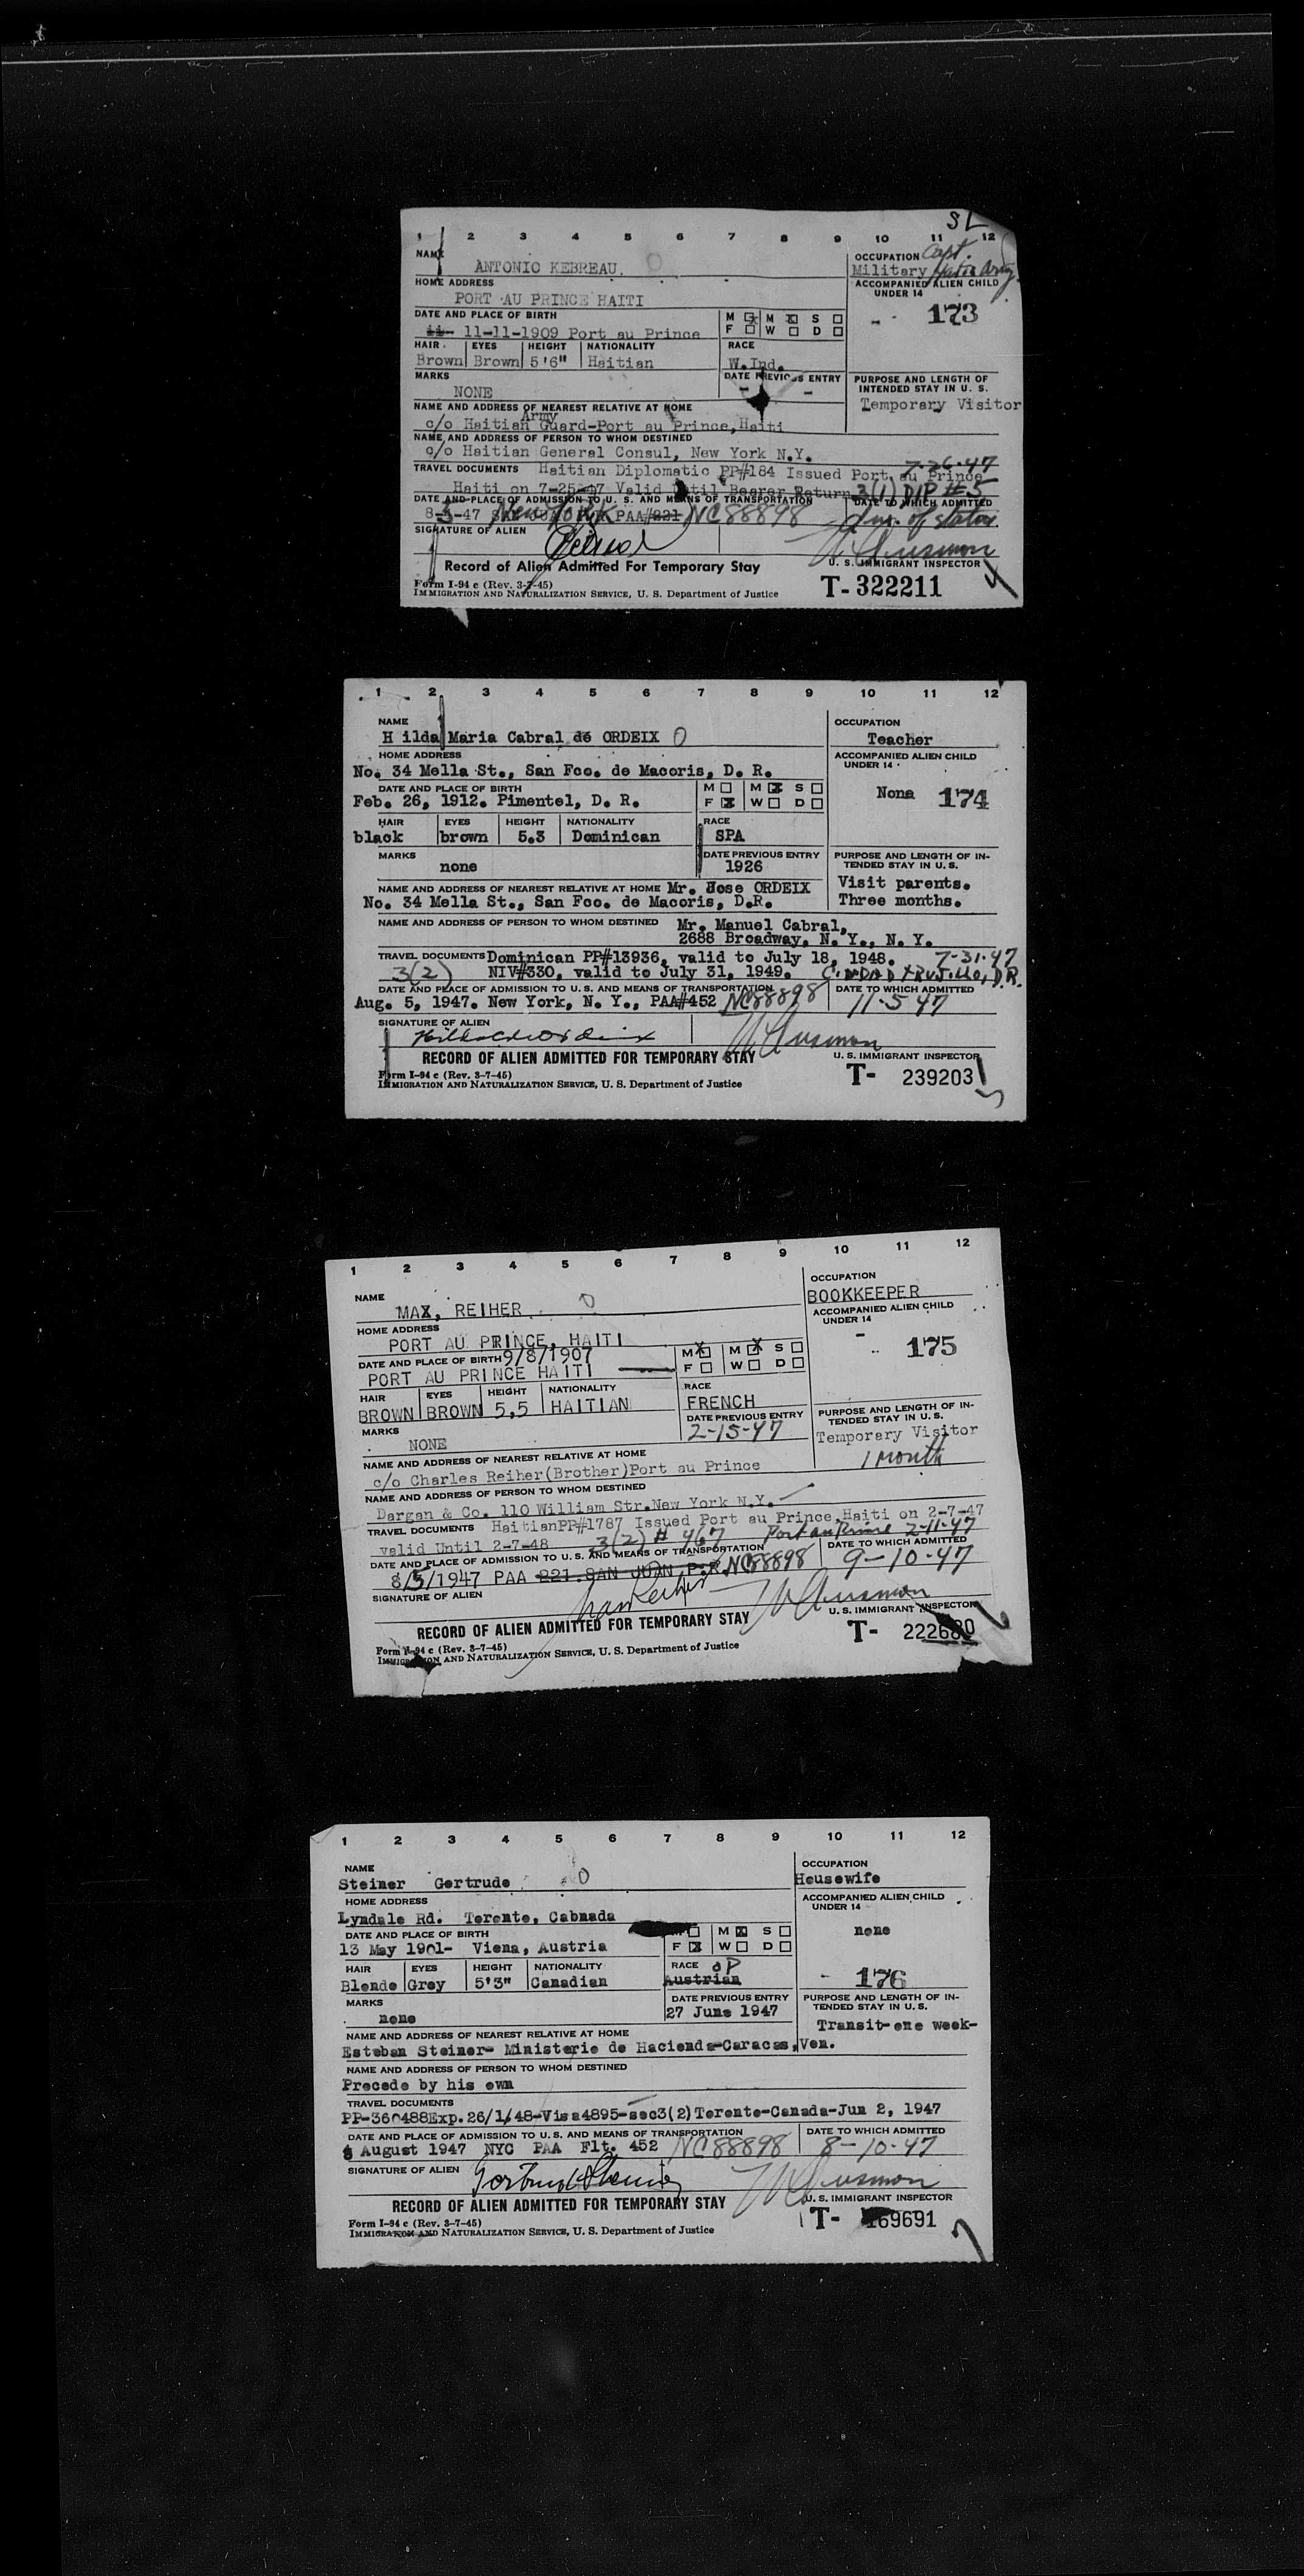 SL
1 2 3 4 5 6 7 8 9 10 11 12
NAME ANTONIO KEBREAU. O
OCCUPATION Capt.
Military Army
HOME ADDRESS
PORT AU PRINCE HAITI
ACCOMPANIED ALIEN CHILD UNDER 14
- 173
DATE AND PLACE OF BIRTH
11- 11-11-1909 Port au Prince
M F M W S D
HAIR EYES HEIGHT NATIONALITY RACE
Brown Brown 5'6" Haitian W.Ind.
MARKS
NONE
DATE PREVIOUS ENTRY
- -
PURPOSE AND LENGTH OF INTENDED STAY IN U. S.
Temporary Visitor
NAME AND ADDRESS OF NEAREST RELATIVE AT HOME
Army
c/o Haitian Guard-Port au Prince, Haiti
NAME AND ADDRESS OF PERSON TO WHOM DESTINED
c/o Haitian General Consul, New York N.Y.
TRAVEL DOCUMENTS Haitian Diplomatic PP#184 Issued Port au Prince 7-26-47
Haiti on 7-25-47 Valid Until Bearer Return 3(1) DIP #5
DATE AND PLACE OF ADMISSION TO U. S. AND MEANS OF TRANSPORTATION
DATE TO WHICH ADMITTED
8-5-47 New York PAA#221 NC88898 dur. of status
SIGNATURE OF ALIEN
Record of Alien Admitted For Temporary Stay
U. S. IMMIGRANT INSPECTOR
Form I-94 c (Rev. 3-7-45)
IMMIGRATION AND NATURALIZATION SERVICE, U. S. Department of Justice
T- 322211
1 2 3 4 5 6 7 8 9 10 11 12
NAME
H ilda Maria Cabral de ORDEIX O
OCCUPATION
Teacher
HOME ADDRESS
No. 34 Mella St., San Fco. de Macoris, D. R.
ACCOMPANIED ALIEN CHILD UNDER 14
None 174
DATE AND PLACE OF BIRTH
Feb. 26, 1912. Pimentel, D. R.
M F M W S D
HAIR EYES HEIGHT NATIONALITY RACE
black brown 5.3 Dominican SPA
MARKS
none
DATE PREVIOUS ENTRY
1926
PURPOSE AND LENGTH OF INTENDED STAY IN U. S.
Visit parents.
Three months.
NAME AND ADDRESS OF NEAREST RELATIVE AT HOME Mr. Jose ORDEIX
No. 34 Mella St., San Fco. de Macoris, D.R.
NAME AND ADDRESS OF PERSON TO WHOM DESTINED Mr. Manuel Cabral,
2688 Broadway, N. Y., N. Y.
TRAVEL DOCUMENTS Dominican PP#13936, valid to July 18, 1948. 7-31-47
3(2) NIV#330, valid to July 31, 1949. C. DAD TRUJILLO, D.R.
DATE AND PLACE OF ADMISSION TO U.S. AND MEANS OF TRANSPORTATION
DATE TO WHICH ADMITTED
Aug. 5, 1947. New York, N. Y., PAA#452 NC88898 11-5-47
SIGNATURE OF ALIEN
RECORD OF ALIEN ADMITTED FOR TEMPORARY STAY
U. S. IMMIGRANT INSPECTOR
Form I-94 c (Rev. 3-7-45)
IMMIGRATION AND NATURALIZATION SERVICE, U. S. Department of Justice
T- 239203
1 2 3 4 5 6 7 8 9 10 11 12
NAME
MAX, REIHER O
OCCUPATION
BOOKKEEPER
HOME ADDRESS
PORT AU PRINCE, HAITI
ACCOMPANIED ALIEN CHILD UNDER 14
- 175
DATE AND PLACE OF BIRTH 9/8/1907
PORT AU PRINCE HAITI
M F M W S D
HAIR EYES HEIGHT NATIONALITY RACE
BROWN BROWN 5,5 HAITIAN FRENCH
MARKS
NONE
DATE PREVIOUS ENTRY
2-15-47
PURPOSE AND LENGTH OF INTENDED STAY IN U.S.
Temporary Visitor
1 month
NAME AND ADDRESS OF NEAREST RELATIVE AT HOME
c/o Charles Reiher(Brother)Port au Prince
NAME AND ADDRESS OF PERSON TO WHOM DESTINED
Dargan & Co. 110 William Str.New York N.Y.
TRAVEL DOCUMENTS HaitianPP#1787 Issued Port au Prince,Haiti on 2-7-47
valid Until 2-7-48 3(2) # 467 Port au Prince 2-11-47
DATE AND PLACE OF ADMISSION TO U. S. AND MEANS OF TRANSPORTATION
DATE TO WHICH ADMITTED
8/5/1947 PAA 221.SAN JUAN P.R. NC88898 9-10-47
SIGNATURE OF ALIEN
RECORD OF ALIEN ADMITTED FOR TEMPORARY STAY
U. S. IMMIGRANT INSPECTOR
Form I-94 c (Rev. 3-7-45)
IMMIGRATION AND NATURALIZATION SERVICE, U. S. Department of Justice
T- 222680
1 2 3 4 5 6 7 8 9 10 11 12
NAME
Steiner Gertrude O
OCCUPATION
Housewife
HOME ADDRESS
Lyndale Rd. Toronto, Cabnada
ACCOMPANIED ALIEN CHILD UNDER 14
none
DATE AND PLACE OF BIRTH
13 May 1901- Viena, Austria
F M W S D
- 176
HAIR EYES HEIGHT NATIONALITY RACE OP
Blonde Grey 5'3" Canadian Austrian
MARKS
none
DATE PREVIOUS ENTRY
27 June 1947
PURPOSE AND LENGTH OF INTENDED STAY IN U.S.
Transit-one week-
NAME AND ADDRESS OF NEAREST RELATIVE AT HOME
Esteban Steiner- Ministerio de Hacienda-Caracas,Ven.
NAME AND ADDRESS OF PERSON TO WHOM DESTINED
Precede by his own
TRAVEL DOCUMENTS
PP-360488Exp.26/1/48-Visa4895-sec3(2)Toronto-Canada-Jun 2, 1947
DATE AND PLACE OF ADMISSION TO U. S. AND MEANS OF TRANSPORTATION
DATE TO WHICH ADMITTED
August 1947 NYC PAA Flt. 452 NC88898 8-10-47
SIGNATURE OF ALIEN
RECORD OF ALIEN ADMITTED FOR TEMPORARY STAY
U. S. IMMIGRANT INSPECTOR
Form I-94 c (Rev. 3-7-45)
IMMIGRATION AND NATURALIZATION SERVICE, U. S. Department of Justice
T- 169691